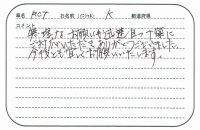 薬 RCT お名前(イニシャル) K 都道府県
コメント
無理なお願いが迅速且つ丁寧に
ご対応いただきありがとうございました。
今後とも宜しくお願いいたします。